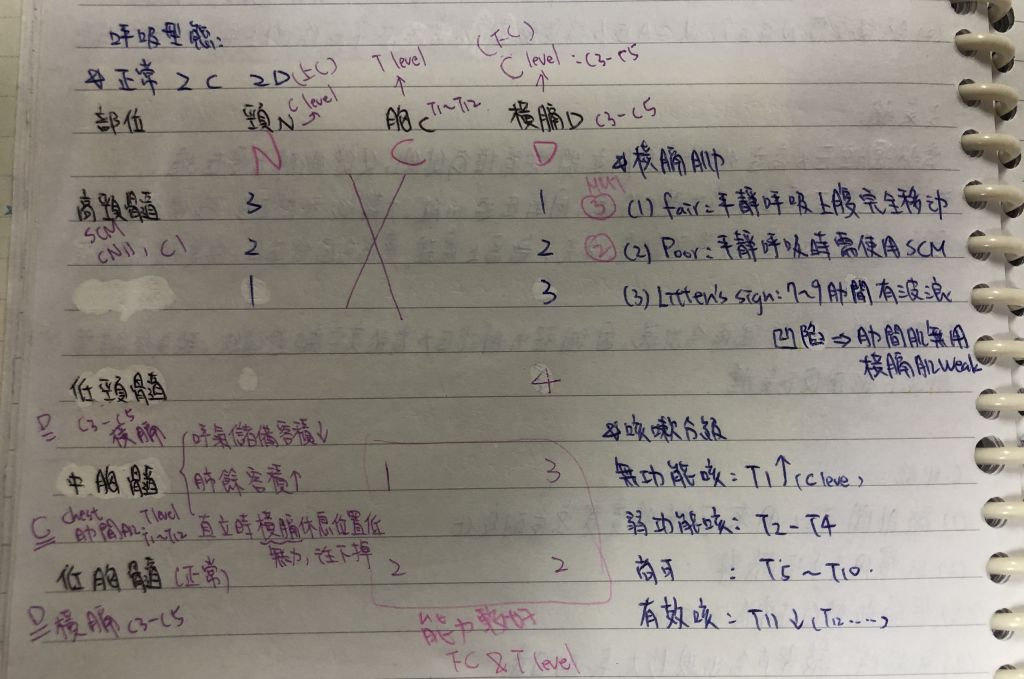 呼吸型態:
正常 2C 2D(下C)
T level
(下C)
C level : C3-C5
部位 頸N C level 胸C T1~T12 橫膈D C3-C5
N C D 橫膈肌
高頸髓 3 1 ③ (1) fair: 平靜呼吸上腹完全移動
SCM
CN11, C1 2 2 ② (2) Poor: 平靜呼吸時需使用SCM
1 3 (3) Litten's sign: 7~9 肋間有波浪
凹陷 ⇒ 肋間肌無用
橫膈肌weak
低頸髓 4
D C3-C5
橫膈 呼氣儲備容積↓ 咳嗽分級
中胸髓 肺餘容積↑ 1 3 無功能咳: T1↑(C level)
C chest 肋間肌: T level T1~T12 直立時橫膈休息位置低 弱功能咳: T2-T4
無力, 往下掉
低胸髓 (正常) 2 2 尚可 : T5~T10.
D 橫膈 C3-C5 有效咳: T11↓(T12.....)
能力較好
下C & T level